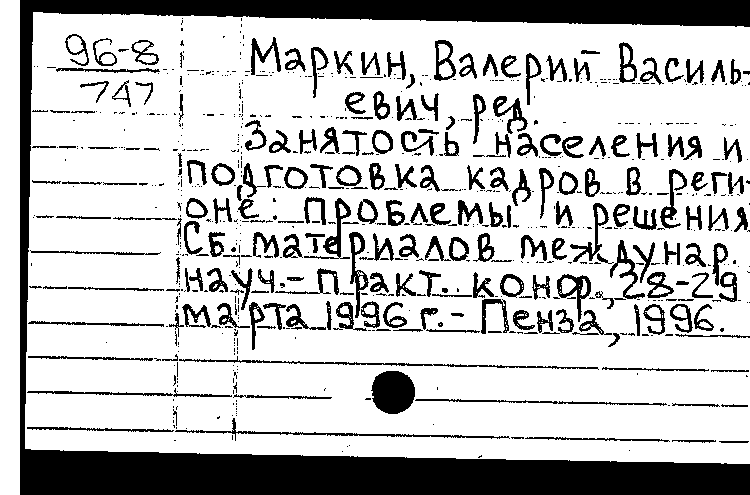 96-8
747
Маркин, Валерий Василь-
евич, ред.
Занятость населения и
подготовка кадров в реги-
оне: проблемы и решения
Сб. материалов междунар.
науч.-практ. конф., 28-29
марта 1996 г.- Пенза, 1996.